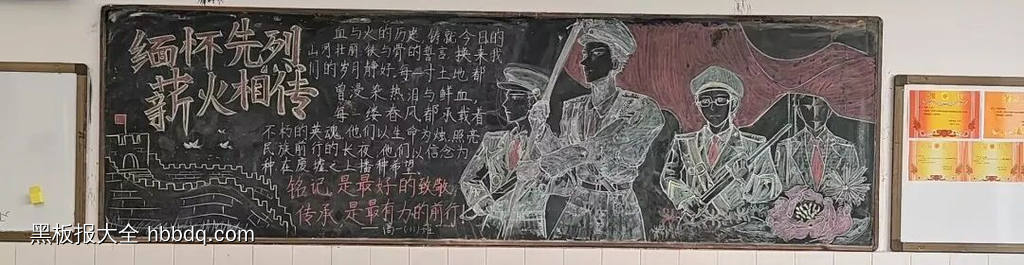 缅怀先烈
薪火相传
血与火的历史 铸就今日的
山河壮丽 铁与骨的誓言 换来我
们的岁月静好 每一寸土地 都
曾浸染热泪与鲜血
每一缕春风都承载着
不朽的英魂 他们以生命为烛 照亮
民族前行的长夜 他们以信念为
种 在废墟之上播种希望
铭记 是最好的致敬
传承 是最有力的前行
黑板报大全 hbbdq.com